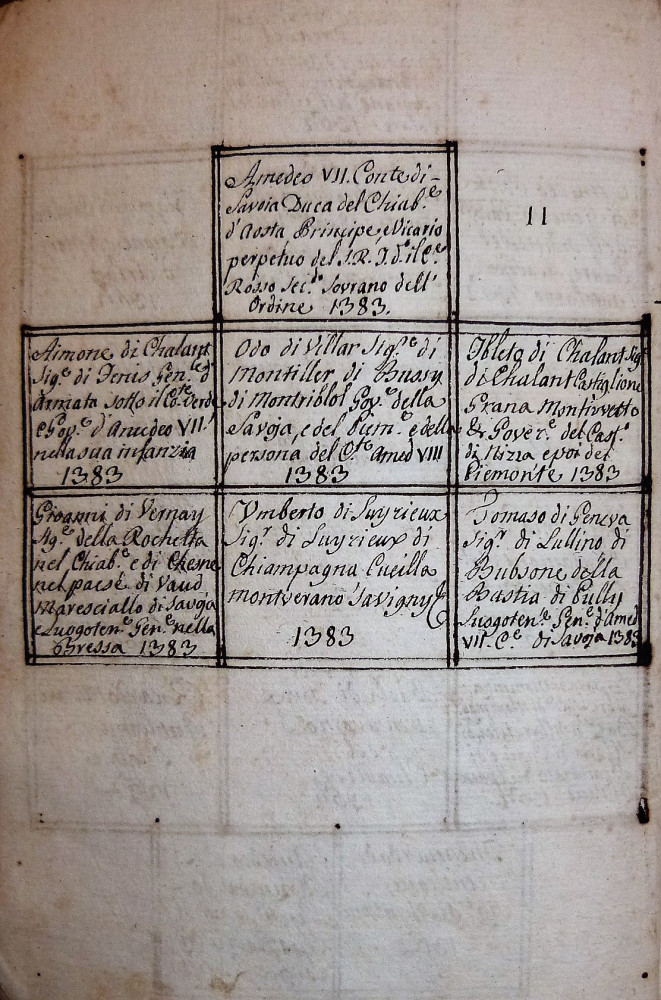 Amedeo VII. Conte di
Savoia Duca del Chiab.e
d'Aosta Principe, e Vicario
perpetuo del S. R. I. d.o il C.e
Rosso Sec.do Sovrano dell'
Ordine 1383.
II
Aimone di Chalant
Sig.e di Fenis Gen.le d'
Armata sotto il Co.te Verde
e Gov.e d'Amedeo VII
nella sua infanzia
1383
Odo di Villar Sig.e di
Montiller di Bussy
di Montribloi Gov.e della
Savoja, e del Piem.e e della
persona del C.te Amed VIII
1383
Ibleto di Chalant Sig.e
di Chalant Castiglione
Grana Montivretto
& Gover.e del Cast.o
di Nizia e poi del
Piemonte 1383
Gioanni di Vernay
Sig.e della Rochetta
nel Chiab.e e di Chesne
nel paese di Vaud
Maresciallo di Savoja
e Luogoten.e Gen.e nella
Bressa 1383
Vmberto di Luyrieux
Sig.r di Luyrieux di
Chiampagna Cueilla
Montverano Savigny
1383
Tomaso di Geneva
Sig.r di Lullino di
Bubsone della
Bastia di Cully
Luogoten.e Gen.e d'Amed
VII.o C.e di Savoja 1383